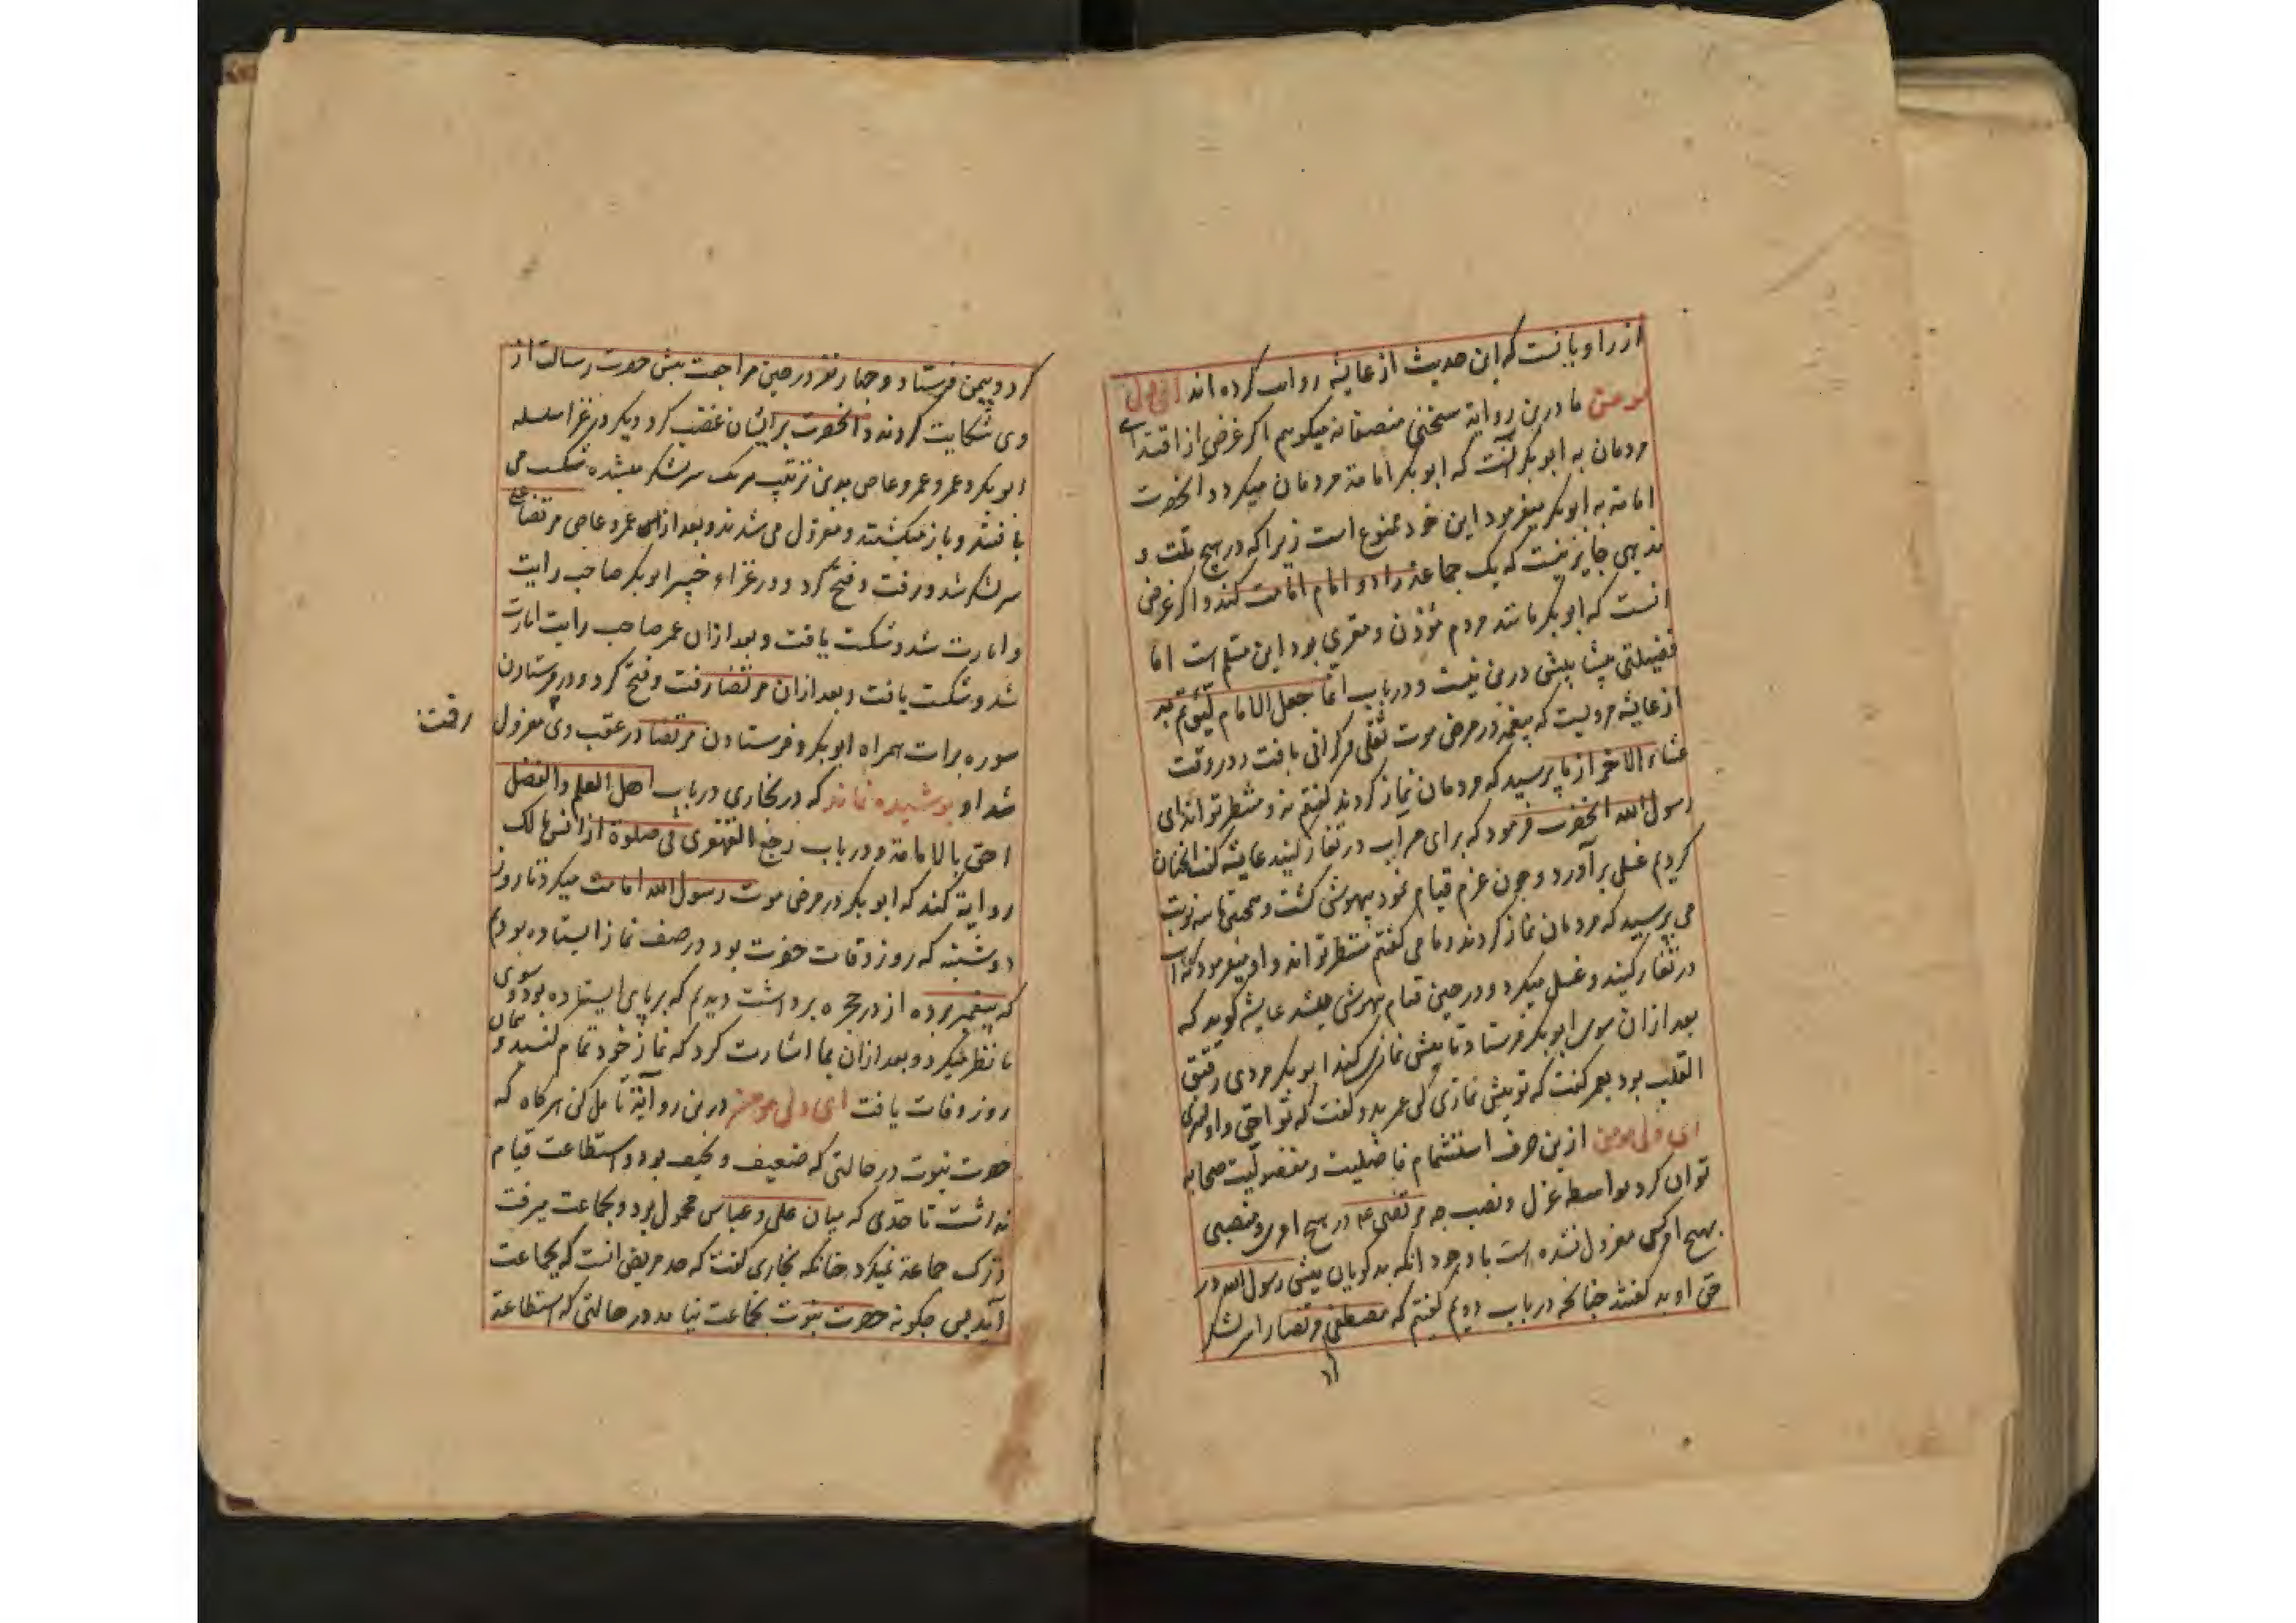 از راویانست که این حدیث از عایشه روایت کرده اند ای ولی
مومن ما درین روایة سخنی منصفانه میکویم اکر غرض از اقتدای
مردمان به ابوبکر آنست که ابوبکر امامة مردمان میکرد و انحضرت
امامة به ابوبکر میفرمود این خود ممنوع است زیرا که در هیچ ملت و
مذهبی جایز نیست که یک جماعة را دو امام امامت کند و اکر غرض
انست که ابوبکر مانند مردم مؤذن و مقری بود این مسلم است اما
فضیلتی پیشا پیشی درین نیست و در باب انما جعل الامام لیؤتم به
از عایشه مرویست که پیغمبر در مرض موت ثقلی و کرانی یافت و در وقت
عشاء الاخر از ما پرسید که مردمان نماز کردند کفتم نه و منتظر تواند ای
رسول الله انحضرت فرمود که برای من آب در تغار کنید عایشه کفت انچنان
کردیم غسلی برآورد و چون عزم قیام نمود بیهوش کشت و همچنین تا سه نوبت
می پرسید که مردمان نماز کردند و ما می کفتم منتظر تو اند و او میفرمود که آب
در تغار کنید و غسل میکرد و در حین قیام بیهوش میشد عایشه کوید که
بعد ازان سوی ابوبکر فرستاد تا پیش نمازی کند ابوبکر مردی رقیق
القلب بود بعمر کفت که تو پیش نمازی کن عمر بدو کفت که تو احق و اولی
ای ولی مومن ازین حرف استشمام فاضلیت و مفضولیت صحابه
توان کرد بواسطه عزل و نصب چه مرتضی ع در هیچ امری و منصبی
بهیچ امر کسی معزول نشده است با وجود انکه بدکویان پیش رسول الله در
حق او بد کفتند چنانچه در باب دویم کفتم که مصطفی مرتضا را سر لشکر
کرد و بیمن فرستاد و چهار نفر در حین مراجعت پیش حضرت رسالت از
وی شکایت کردند و انحضرت بر ایشان غضب کرد و دیکر در غزا سلسله
ابوبکر و عمر و عمرو عاص بدین ترتیب هر یک سر لشکر میشده شکست می
یافتند و باز میکشتند و معزول می شدند و بعد از عمرو عاص مرتضا
سر لشکر شد و رفت و فتح کرد و در غزاء خیبر ابوبکر صاحب رایت
و امارت شد و شکست یافت و بعد ازان عمر صاحب رایت امارت
شد و شکست یافت و بعد ازان مرتضا رفت و فتح کرد و در فرستادن
سوره برات همراه ابوبکر و فرستادن مرتضا در عقب وی معزول
رفت
شد او پوشیده نماند که در بخاری در باب اهل العلم والفضل
احق بالامامة و در باب رجع القهقری فی صلوة از انس مالک
روایة کند که ابوبکر در مرض موت رسول الله امامت میکرد تا روز
دوشنبه که روز وفات حضرت بود در صف نماز ایستاده بودیم
که پیغمبر پرده از در حجره برداشت دیدیم که بر پای ایستاده بود و سوی
ما نظر میکرد و بعد ازان بما اشارت کرد که نماز خود تمام کنید و همان
روز وفات یافت ای ولی مومن درین روایة تامل کن هر کاه که
حضرت نبوت در حالتی که ضعیف و نحیف بود و استطاعت قیام
نداشت تا حدی که میان علی و عباس محمول بود و بجماعت میرفت
و ترک جماعة نمیکرد چنانکه بخاری کفت که حد مریض انست که بجماعت
آید پس چکونه حضرت نبوت بجماعت نیامد در حالتی که استطاعة